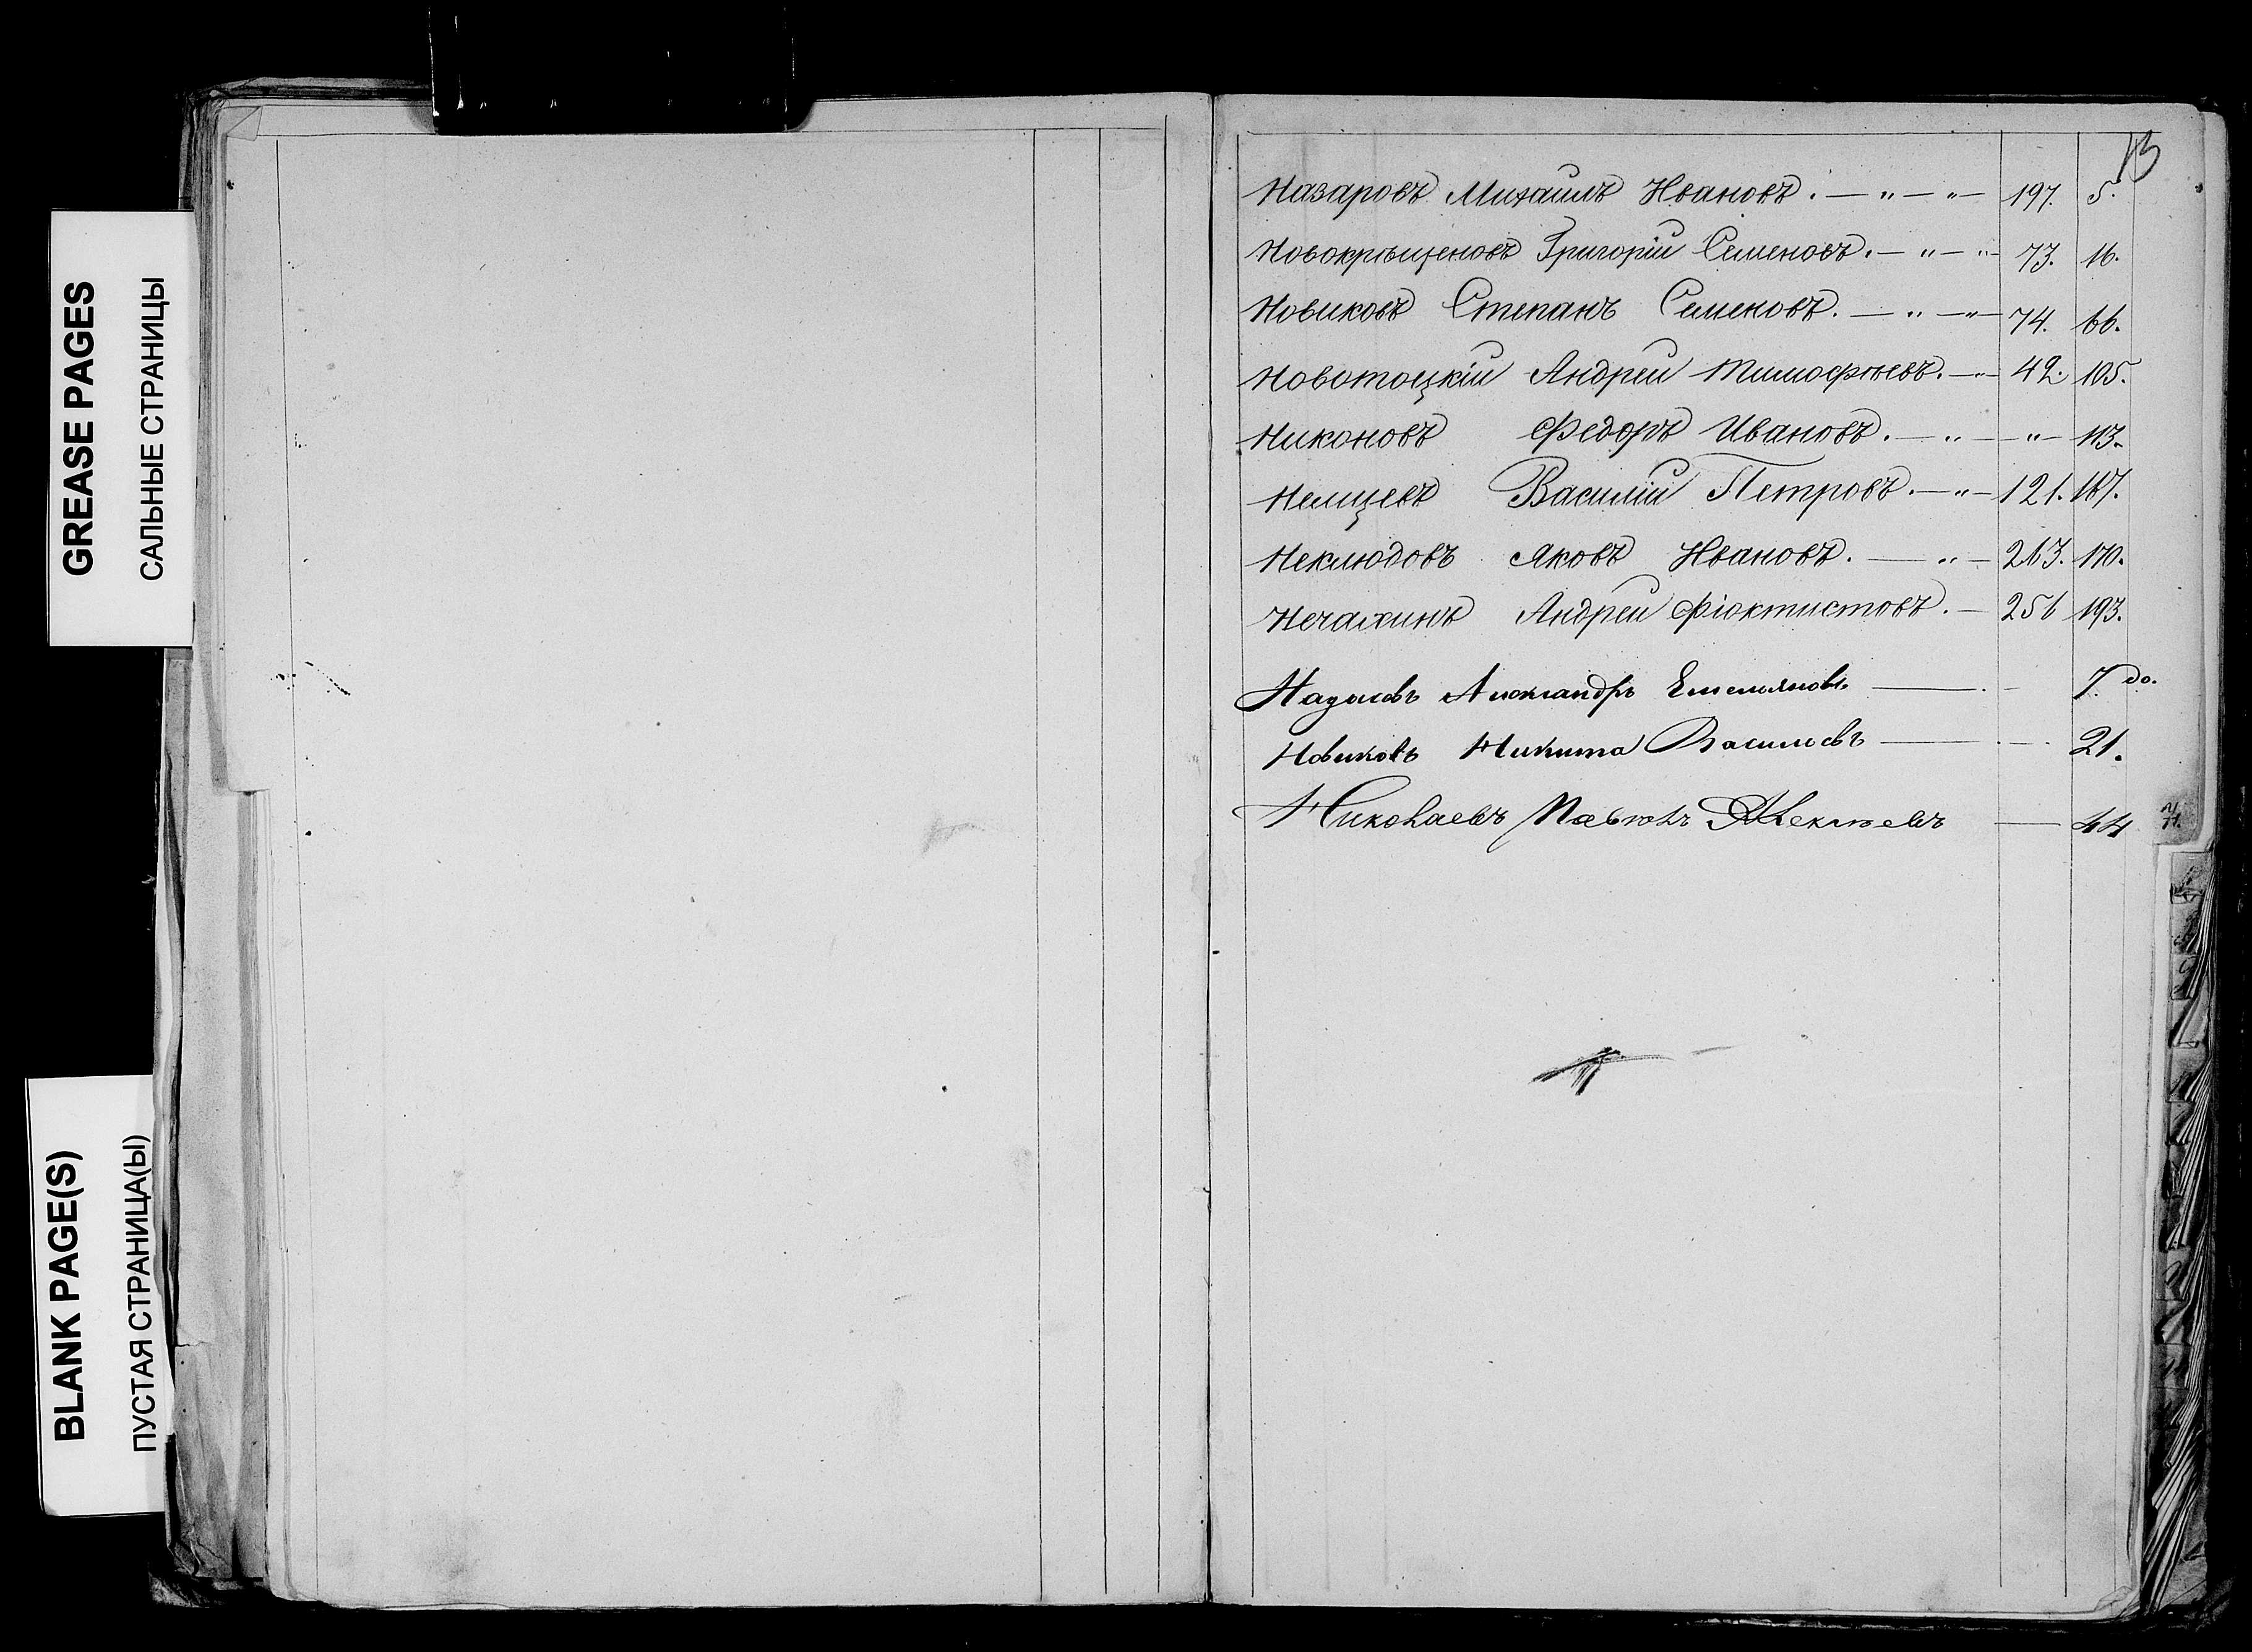 GREASE PAGES
САЛЬНЫЕ СТРАНИЦЫ
BLANK PAGE(S)
ПУСТАЯ СТРАНИЦА(Ы)
13
Назаровъ Михаилъ Ивановъ. — " — " — 197. 5.
Новокрѣщеновъ Григорій Семеновъ. — " — " — 73. 16.
Новиковъ Степанъ Семеновъ. — " — " — 74. 66.
Новотоцкій Андрей Тимофѣевъ. — " — 42. 105.
Никоновъ Федоръ Ивановъ. — " — " — 113.
Немцевъ Василій Петровъ. — " — 121. 167.
Неклюдовъ Яковъ Ивановъ. — " — 263. 170.
Нечахинъ Андрей Фіоктистовъ. — 256 193.
Александръ Емельяновъ. — 7 до.
Новиковъ Никита Васильевъ — 21.
Николаевъ Павелъ Алексѣевъ — 44